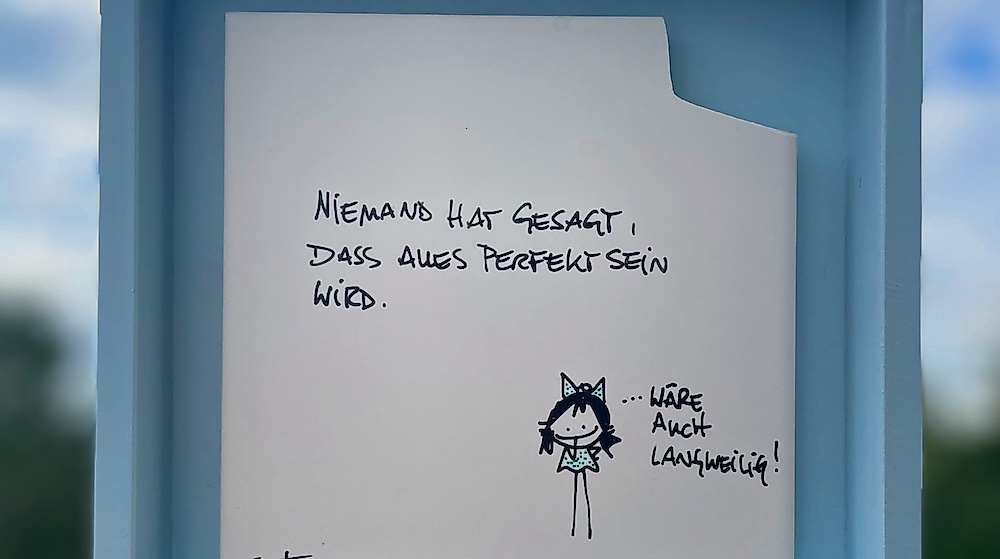 NIEMAND HAT GESAGT,
DASS ALLES PERFEKT SEIN
WIRD.
... WÄRE
AUCH
LANGWEILIG!